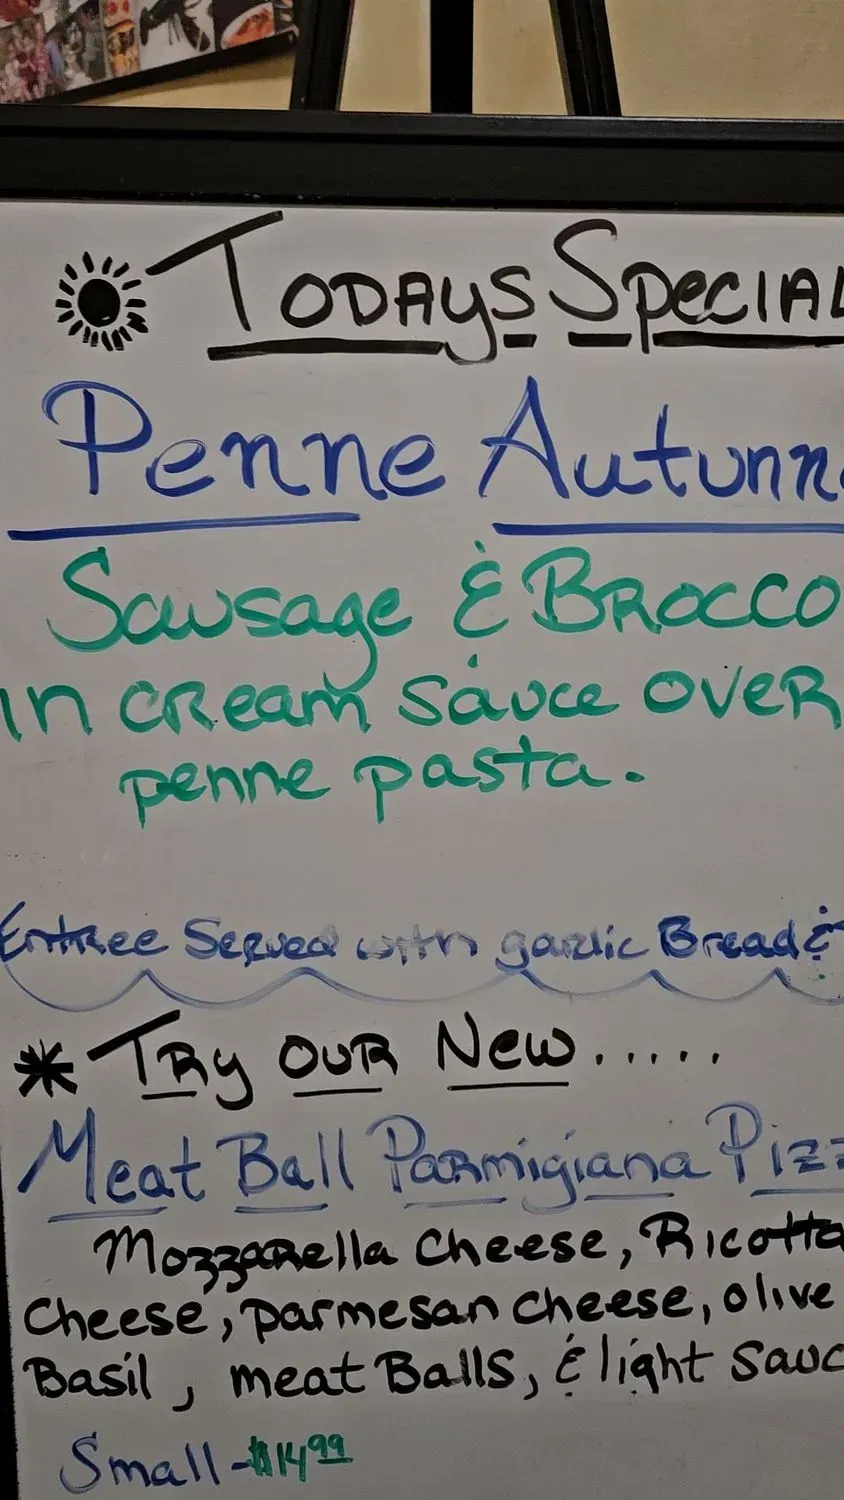 Todays Special
Penne Autunn
Sausage & Brocco
in cream sauce over
penne pasta.
Entree Served with garlic Bread &
* Try our New.....
Meat Ball Parmigiana Pizz
Mozzarella Cheese, Ricotta
Cheese, parmesan cheese, olive
Basil, meat Balls, & light sauc
Small - $14.99